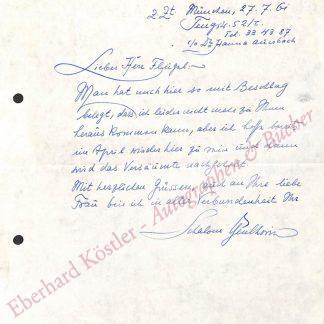 z Zt München, 27. 7. 61
Tengstr. 52/I.
Tel. 33 43 87
c/o Dr Hanna Auerbach
Lieber Herr
Man hat mich hier so mit Beschlag
belegt, dass ich leider nicht mehr zu Ihnen
heraus kommen kann, aber ich hoffe bereits
im April wieder hier zu sein und dann
wird das Versäumte nachgeholt.
Mit herzlichen Grüssen auch an Ihre liebe
Frau bin ich in alter Verbundenheit Ihr
Schalom
Eberhard Köstler - Autographen & Bücher